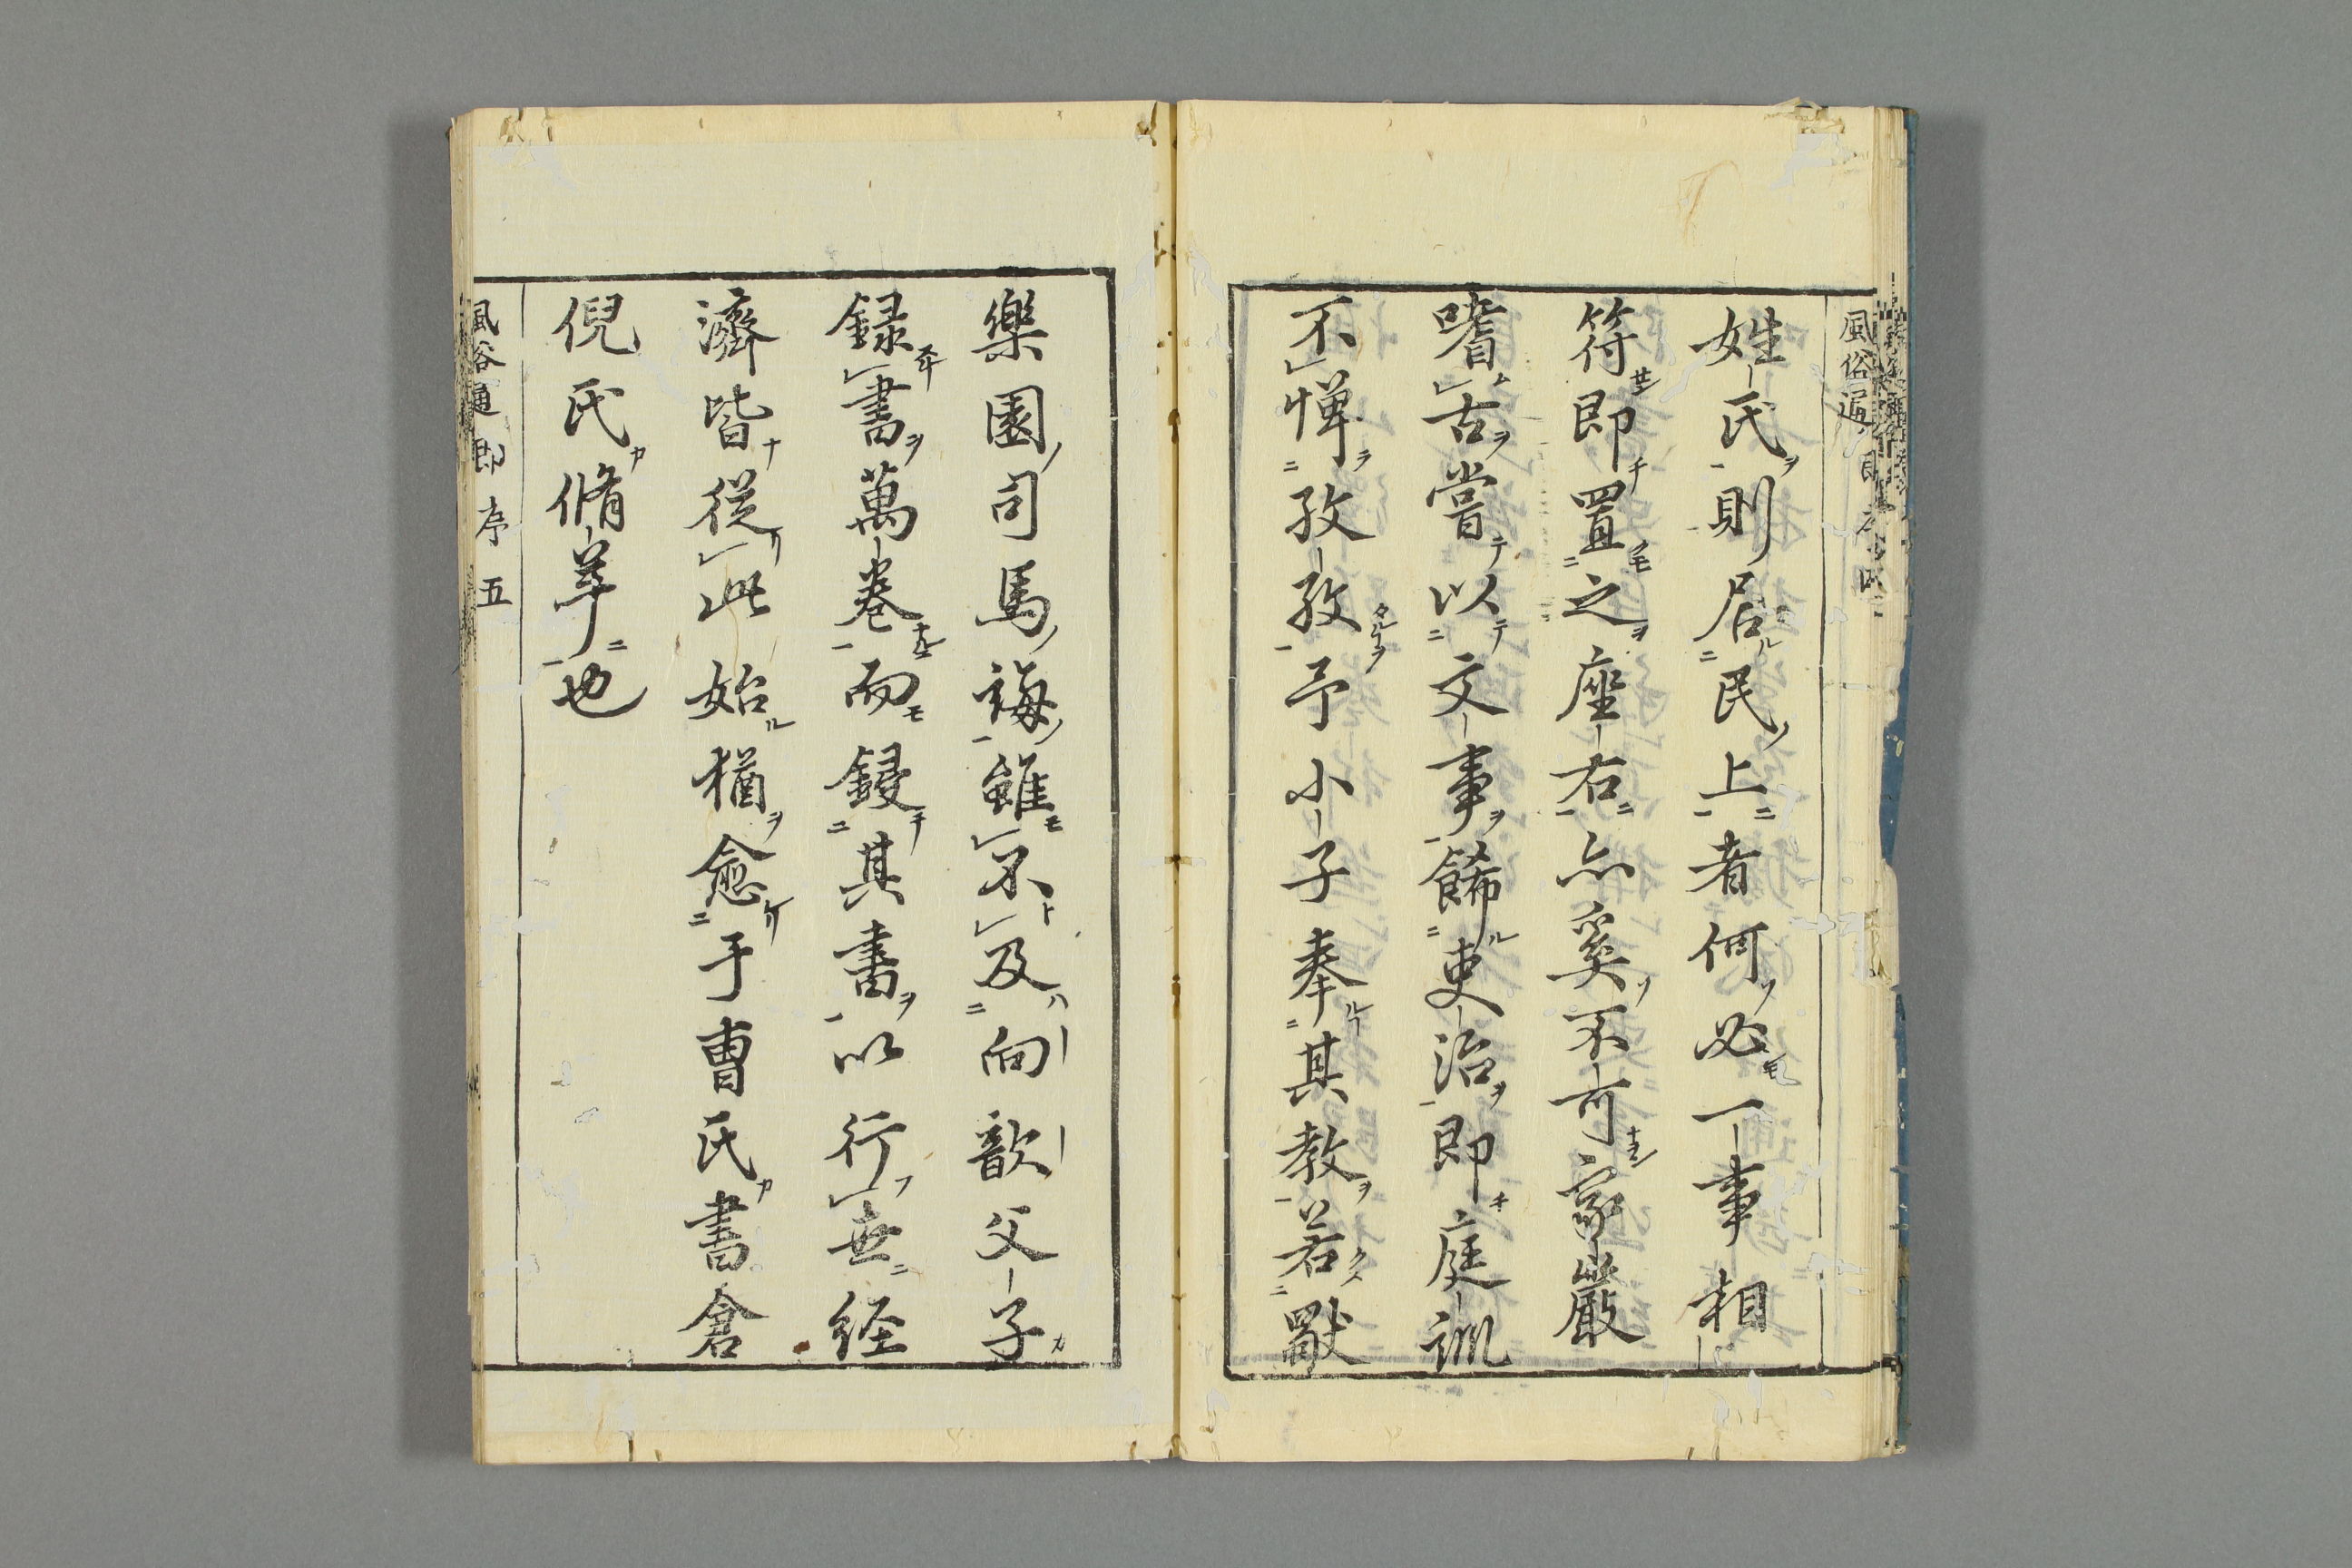 風俗通
姓氏則居民上者何必一事相
符即置之座右亦奚不可家嚴
嗜古嘗以文事餙吏治即庭訓
不憚孜孜予小子奉其教若獸
樂園司馬誨雖不及向歆父子
録書萬卷而鋟其書以行世経
濟皆従此始猶愈于曹氏書倉
倪氏脩羊也
風俗通 即序 五